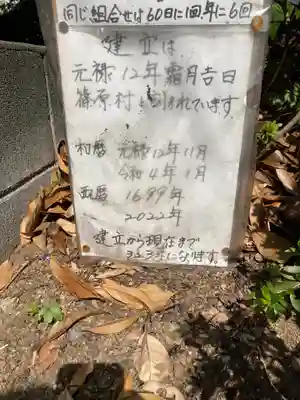 同じ組合せは60日に1回年に6回
建立は
元禄12年霜月吉日
篠原村と刻まれています。
和暦 元禄12年11月
令和4年1月
西暦 1699年
2022年
建立から現在まで
323年になります。